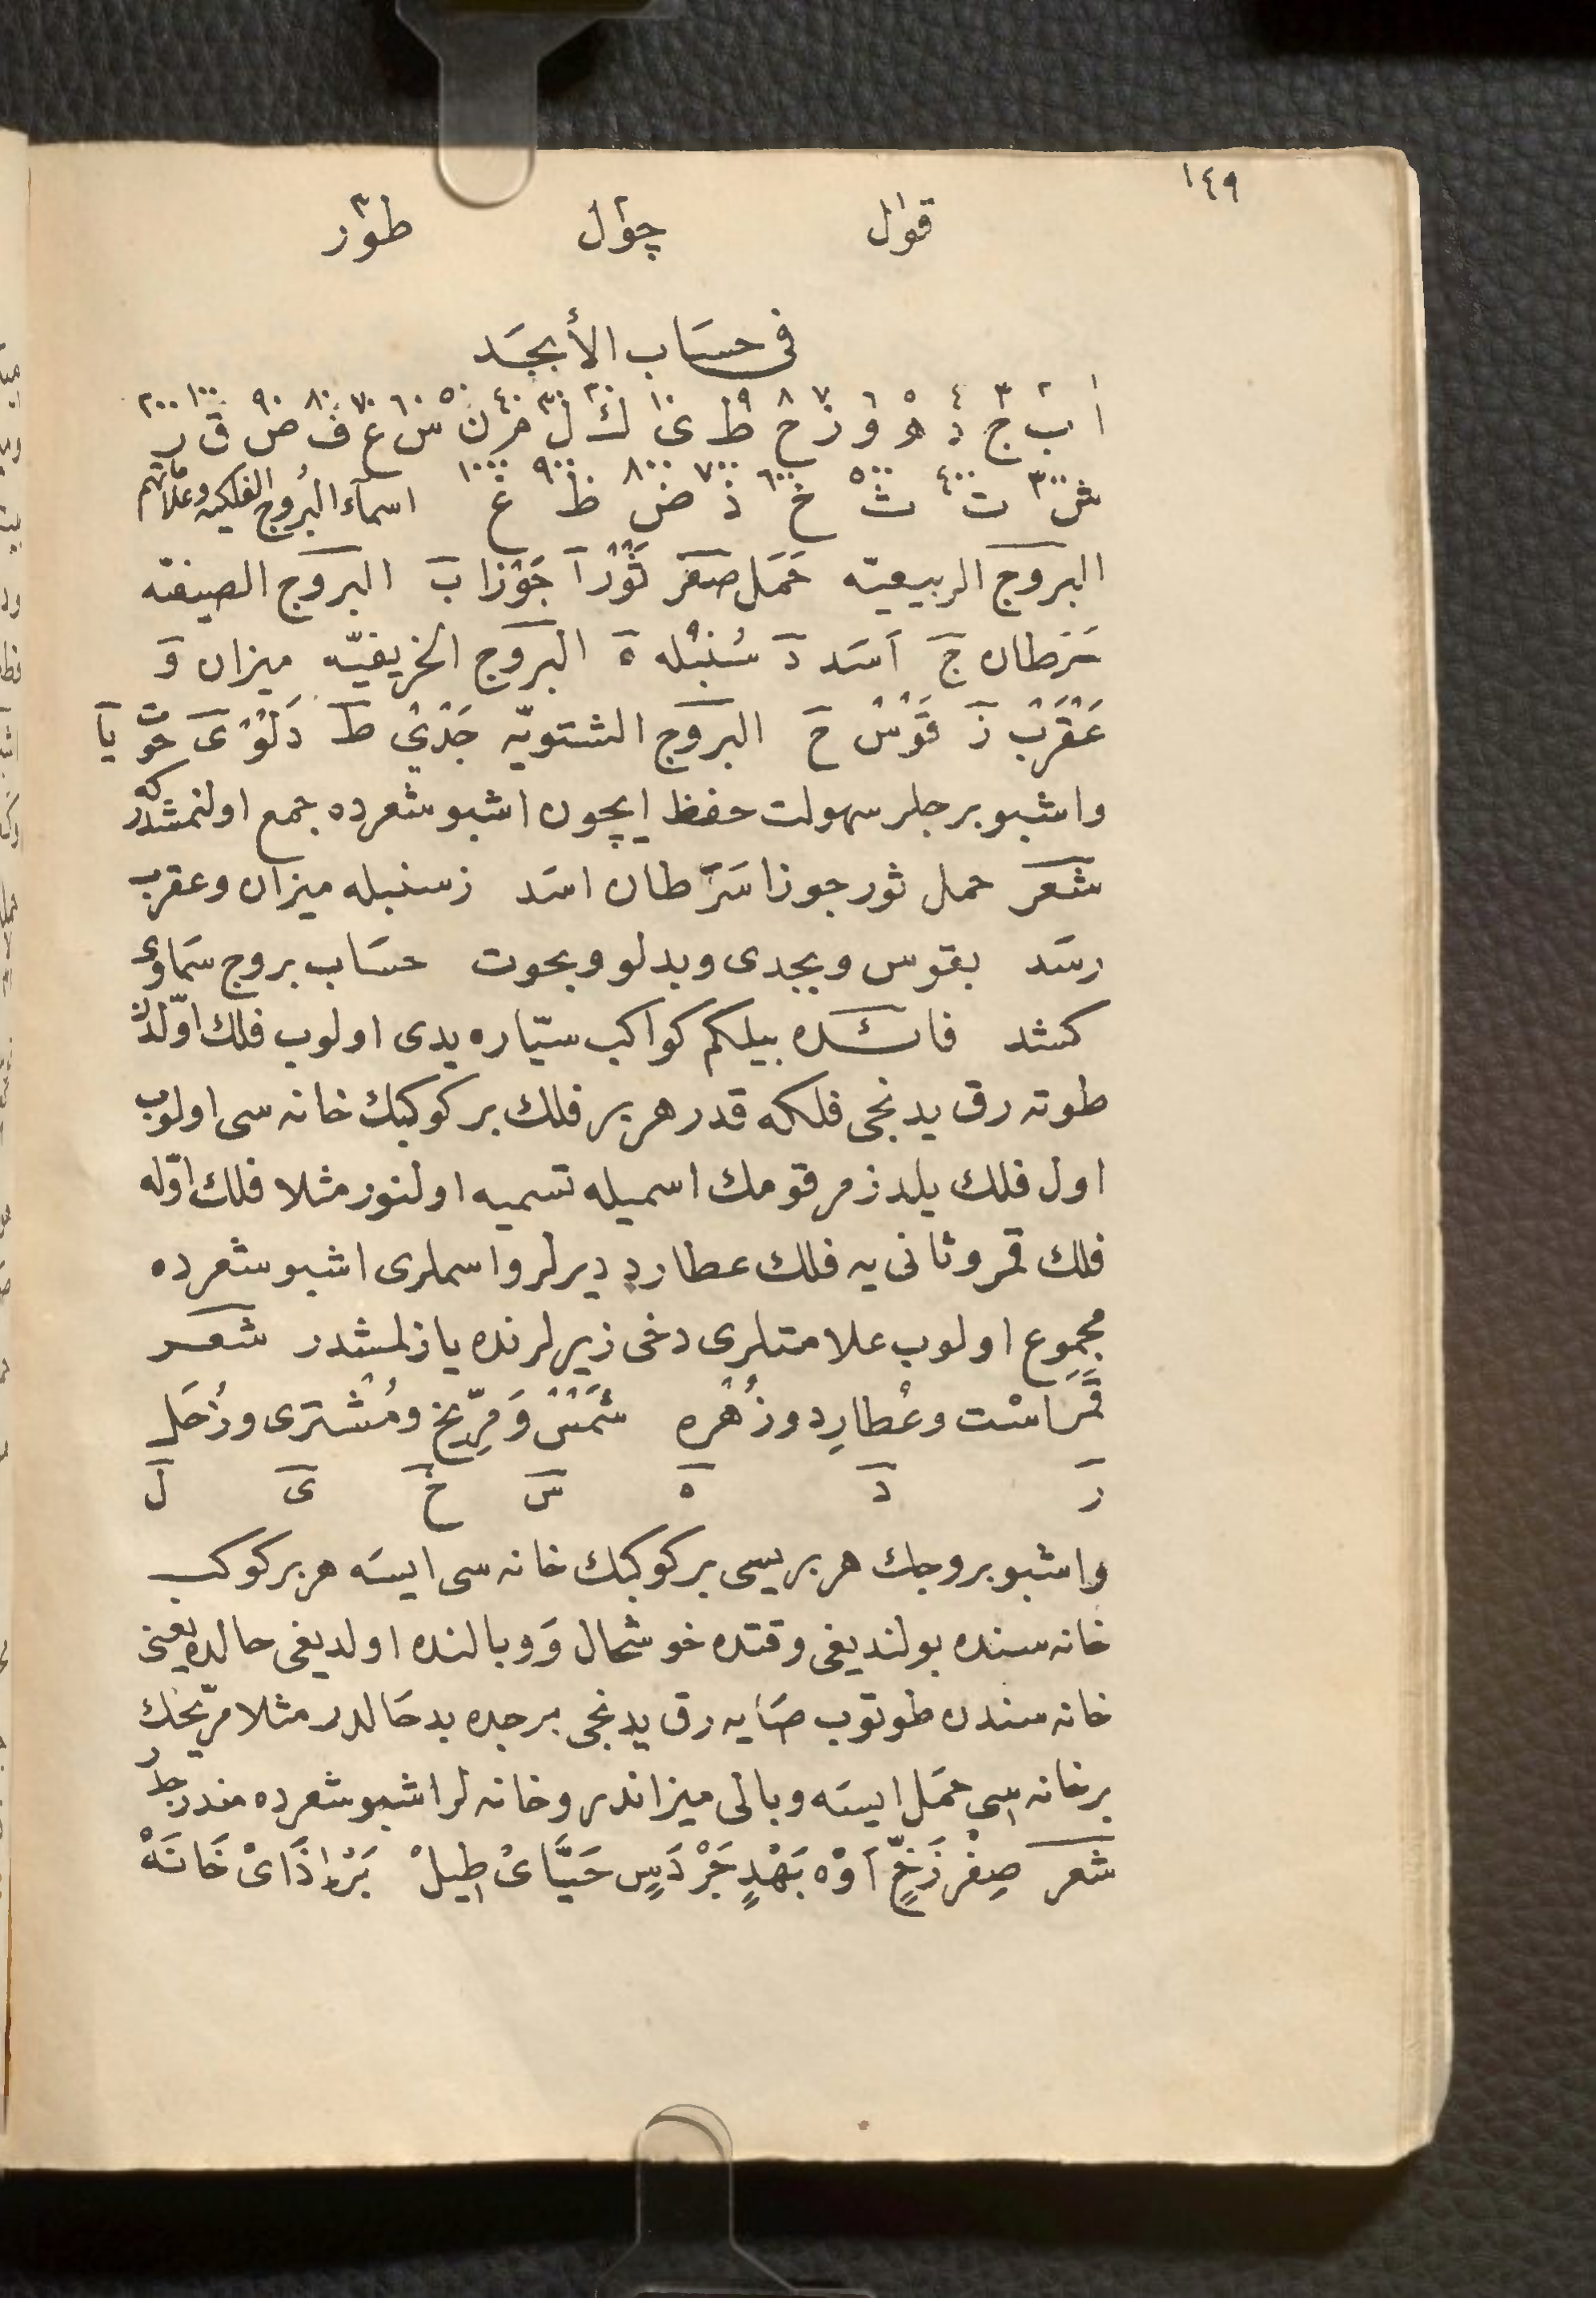 ١٤٩
قوال چوال طور
١ ٢ ٣
فى حساب الأبجد
١ ٢ ٣ ٤ ٥ ٦ ٧ ٨ ٩ ١٠ ٢٠ ٣٠ ٤٠ ٥٠ ٦٠ ٧٠ ٨٠ ٩٠ ١٠٠ ٢٠٠
ا ب ج د ه و ز ح ط ى ك ل م ن س ع ف ص ق ر
٣٠٠ ٤٠٠ ٥٠٠ ٦٠٠ ٧٠٠ ٨٠٠ ٩٠٠ ١٠٠٠
ش ت ث خ ذ ض ظ غ اسمآء البروج الفلكيه وعلاماتهم
البروج الربيعيّه حَمَل صفر ثَوْر آ جَوْزا بَ البروج الصيفيّه
سَرَطان جَ اَسَد دَ سُنبُله هَ البروج الخريفيّه ميزان وَ
عَقْرَبْ زَ قَوْسْ حَ البروج الشتويّه جَدْىْ طَ دَلْوْ ىَ حوت يآ
واشبو برجلر سهولت حفظ ايچون اشبو شعرده جمع اولنمشدركه
شعر حمل ثور جوزا سَرَطان اسَد ز سنبله ميزان وعقرب
رسَد بقوس وبجدى وبدلو وبحوت حسَاب بروج سَماوى
كشد فائده بيلكم كواكب سيّاره يدى اولوب فلك اوّلدن
طوته رق يدنجى فلكه قدر هر بر فلك بر كوكبك خانه سى اولوب
اول فلك يلدز مرقومك اسميله تسميه اولنور مثلا فلك اوّله
فلك قمر وثانى يه فلك عطارد ديرلر واسملرى اشبو شعرده
مجموع اولوب علامتلرى دخى زيرلرنده يازلمشدر شعر
قَمَر اسْت وعُطارِد وزُهْره شَمْسْ وَمِرّيخ ومُشْترى وزُحَل
رَ دَ هَ سَ خَ ىَ لَ
واشبو بروجك هر بريسى بر كوكبك خانه سى ايسَه هر بر كوكب
خانه سنده بولنديغى وقتده خوشحال وَوبالنده اولديغى حالده يعنى
خانه سندن طوتوب صَايه رق يدنجى برجده بدحَالدر مثلا مرّيخك
بر خانه سى حمَل ايسَه وبالى ميزاندر وخانه لر اشبو شعرده مندرجدر
شعر صِفْر زَخٍّ آوْه بَهْدٍ جَرْ دَسٍ حَيَّاىْ طِيلْ بَرْاذَاىْ خَانَهْ